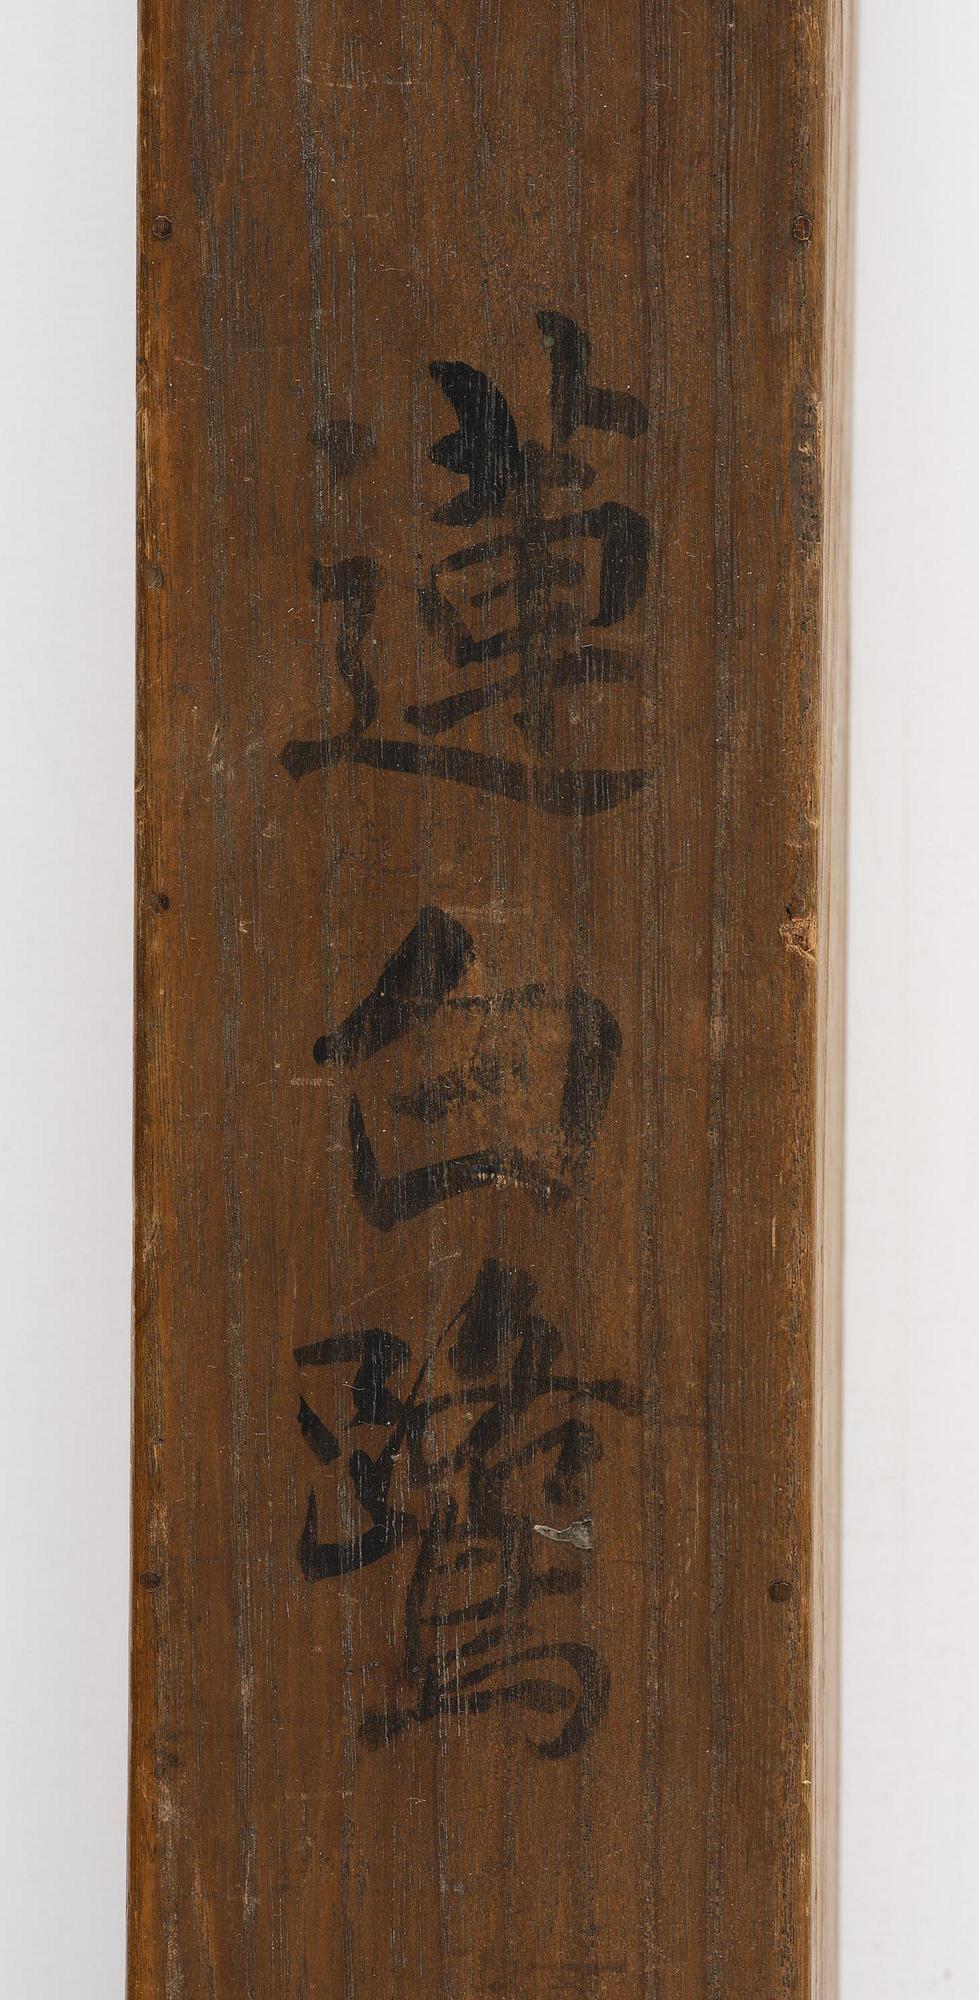 蓮白鷺